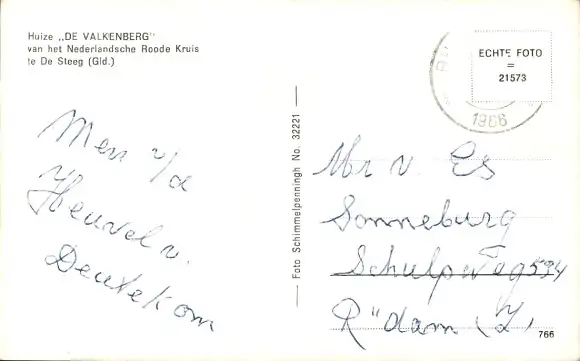 Huize „DE VALKENBERG"
van het Nederlandsche Roode Kruis
te De Steeg (Gld.)
Men v/d
Heuvel v.
Deutekom
— Foto Schimmelpenningh No. 32221 —
ECHTE FOTO
=
21573
1966
Mr v. Es
Sonneburg
Schulpweg 594
R"dam (Z,
766